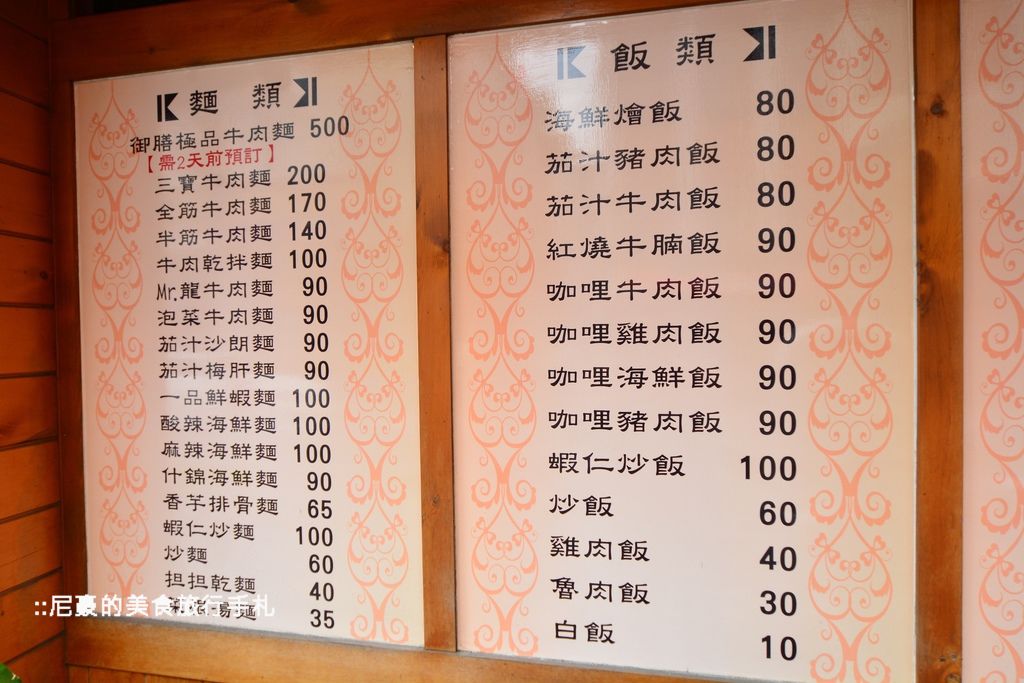 麵 類
御膳極品牛肉麵 500
【需2天前預訂】
三寶牛肉麵 200
全筋牛肉麵 170
半筋牛肉麵 140
牛肉乾拌麵 100
Mr.龍牛肉麵 90
泡菜牛肉麵 90
茄汁沙朗麵 90
茄汁梅肝麵 90
一品鮮蝦麵 100
酸辣海鮮麵 100
麻辣海鮮麵 100
什錦海鮮麵 90
香芋排骨麵 65
蝦仁炒麵 100
炒麵 60
担担乾麵 40
湯麵 35
飯 類
海鮮燴飯 80
茄汁豬肉飯 80
茄汁牛肉飯 80
紅燒牛腩飯 90
咖哩牛肉飯 90
咖哩雞肉飯 90
咖哩海鮮飯 90
咖哩豬肉飯 90
蝦仁炒飯 100
炒飯 60
雞肉飯 40
魯肉飯 30
白飯 10
::尼豪的美食旅行手札